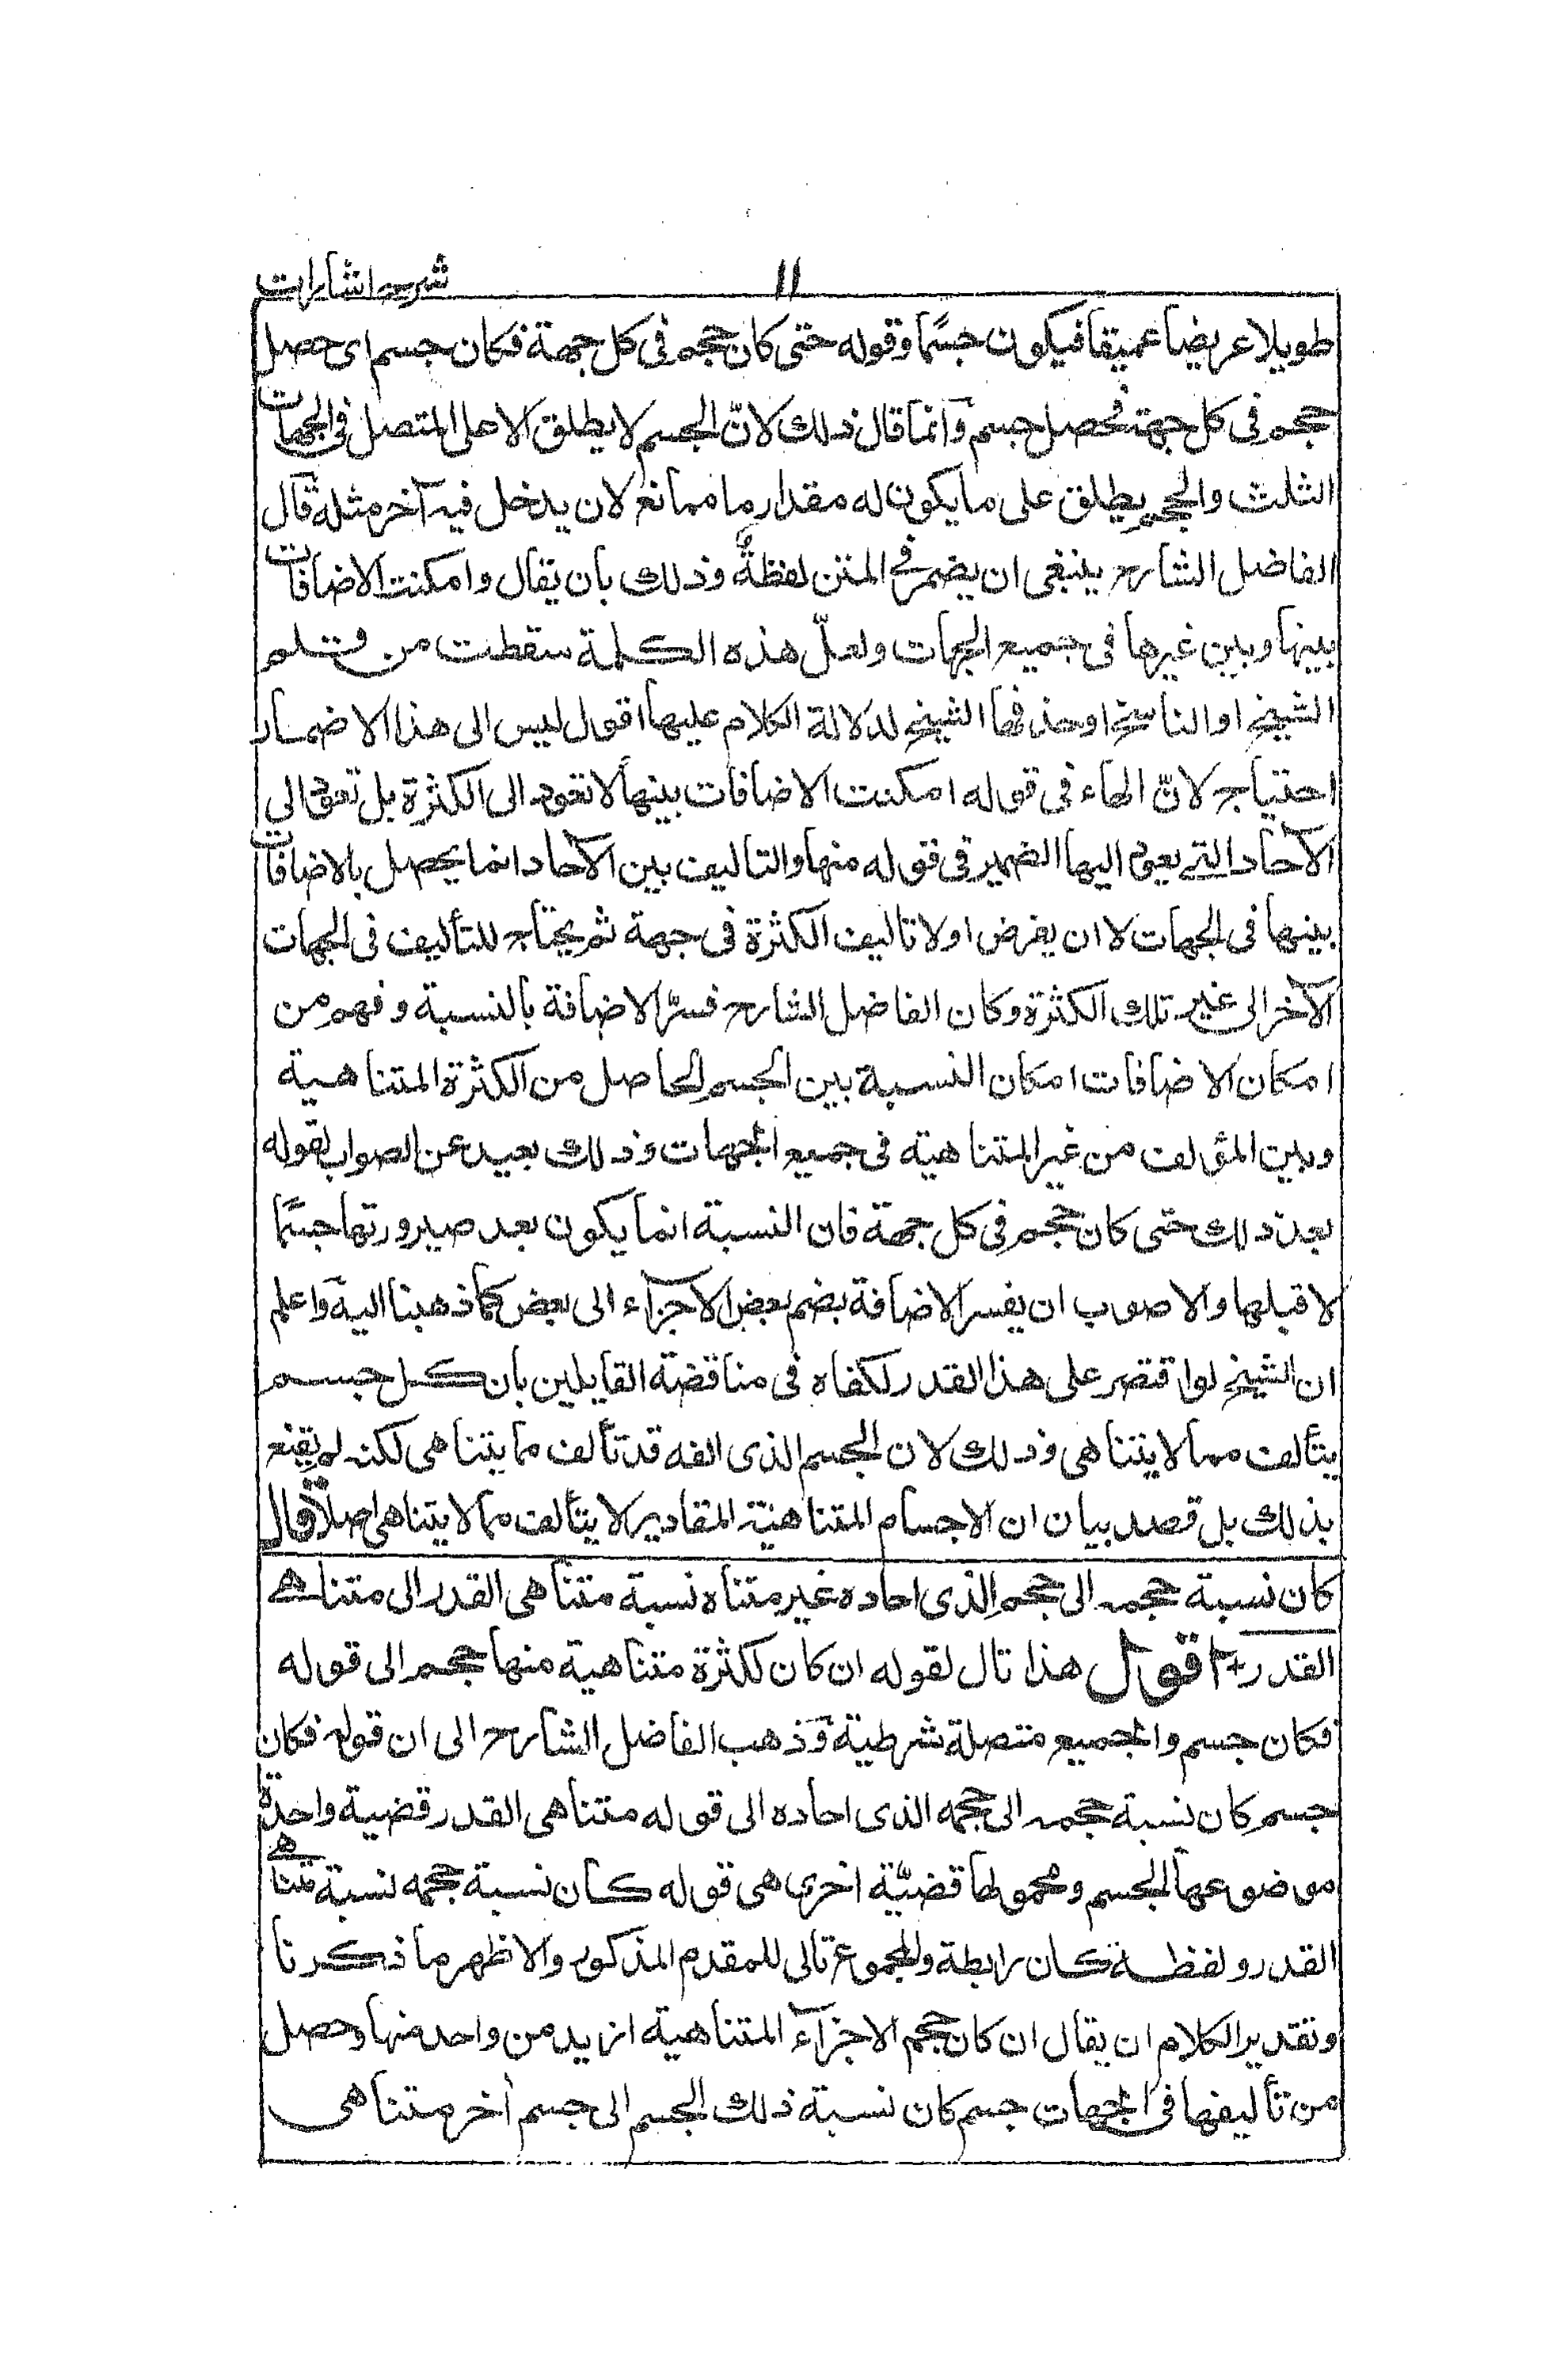 شرح اشارات
١١
طويلا عريضا عميقا فيكون جسمًا وقوله حتى كان حجم فى كل جهة فكان جسم اى حصل
حجم فى كل جهة فحصل جسم وانما قال ذلك لانّ الجسم لا يطلق الا على المتصل فى الجهات
الثلث والحجم يطلق على ما يكون له مقدار ما ممانع لان يدخل فيه آخر مثله قال
الفاضل الشارح ينبغى ان يضمر فى المتن لفظةٌ وذلك بان يقال وامكنت الاضافات
بينها وبين غيرها فى جميع الجهات ولعلّ هذه الكلمة سقطت من قلم
الشيخ او الناسخ او حذفها الشيخ لدلالة الكلام عليها اقول ليس الى هذا الاضمار
احتياج لانّ الهاء فى قوله امكنت الاضافات بينها لا تعود الى الكثرة بل تعود الى
الآحاد التى يعود اليها الضمير فى قوله منها والتاليف بين الآحاد انما يحصل بالاضافات
بينها فى الجهات لا ان يفرض اولا تاليف الكثرة فى جهة ثم يحتاج للتأليف فى الجهات
الآخر الى غير تلك الكثرة وكان الفاضل الشارح فسّر الاضافة بالنسبة وفهم من
امكان الاضافات امكان النسبة بين الجسم الحاصل من الكثرة المتناهية
وبين المؤلف من غير المتناهية فى جميع الجهات وذلك بعيد عن الصواب لقوله
بعد ذلك حتى كان حجم فى كل جهة فان النسبة انما يكون بعد صيرورتها جسمًا
لا قبلها والاصوب ان يفسر الاضافة بضم بعض الاجزآء الى بعض كما ذهبنا اليه واعلم
ان الشيخ لو اقتصر على هذا القدر لكفاه فى مناقضة القايلين بان كل جسم
يتألف مما لا يتناهى وذلك لان الجسم الذى الفه قد تألف مما يتناهى لكنه لم يقنع
بذلك بل قصد بيان ان الاجسام المتناهيّة المقادير لا يتألف مما لا يتناهى اصلا قال
كان نسبة حجمه الى حجم الذى احاده غير متناه نسبة متناهى القدر الى متناهى
القدر + اقول هذا تال لقوله ان كان لكثرة متناهية منها حجم الى قوله
فكان جسم والجميع متصلة شرطية وذهب الفاضل الشارح الى ان قوله فكان
جسم كان نسبة حجمه الى حجمه الذى احاده الى قوله متناهى القدر قضية واحدة
موضوعها الجسم ومحمولها قضيّة اخرى هى قوله كان نسبة حجمه نسبة متناهى
القدر ولفظة كان رابطة والمجموع تالى للمقدم المذكور والاظهر ما ذكرنا
وتقدير الكلام ان يقال ان كان حجم الاجزآء المتناهية ازيد من واحد منها وحصل
من تأليفها فى الجهات جسم كان نسبة ذلك الجسم الى جسم أخر متناهى